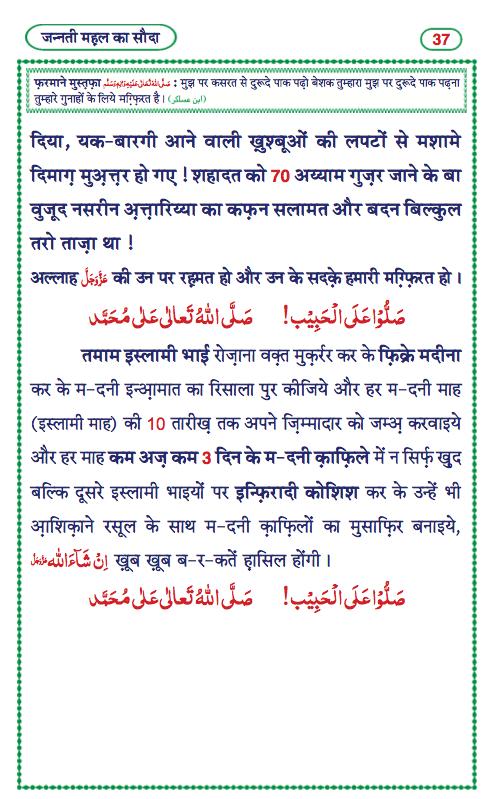 जन्नती महल का सौदा
37
फ़रमाने मुस्तफ़ा صَلَّى اللهُ تَعَالٰى عَلَيْهِ وَاٰلِهٖ وَسَلَّم : मुझ पर कसरत से दुरूदे पाक पढ़ो बेशक तुम्हारा मुझ पर दुरूदे पाक पढ़ना
तुम्हारे गुनाहों के लिये मग़्फ़िरत है। (ابن عساکر)
दिया, यक-बारगी आने वाली ख़ुश्बूओं की लपटों से मशामे
दिमाग़ मुअ़त्त़र हो गए ! शहादत को 70 अय्याम गुज़र जाने के बा
वुजूद नसरीन अ़त्त़ारिय्या का कफ़न सलामत और बदन बिल्कुल
तरो ताज़ा था !
अल्लाह عَزَّوَجَلَّ की उन पर रह़मत हो और उन के सदक़े हमारी मग़्फ़िरत हो।
صَلُّوْا عَلَى الْحَبِيْب! صَلَّى اللهُ تَعَالٰى عَلٰى مُحَمَّد
तमाम इस्लामी भाई रोज़ाना वक़्त मुक़र्रर कर के फ़िक्रे मदीना
कर के म-दनी इन्आ़मात का रिसाला पुर कीजिये और हर म-दनी माह
(इस्लामी माह) की 10 तारीख़ तक अपने ज़िम्मादार को जम्अ़ करवाइये
और हर माह कम अज़ कम 3 दिन के म-दनी क़ाफ़िले में न सिर्फ़ ख़ुद
बल्कि दूसरे इस्लामी भाइयों पर इन्फ़िरादी कोशिश कर के उन्हें भी
आ़शिक़ाने रसूल के साथ म-दनी क़ाफ़िलों का मुसाफ़िर बनाइये,
اِنْ شَآءَ اللّٰه عَزَّوَجَلَّ ख़ूब ख़ूब ब-र-कतें ह़ासिल होंगी।
صَلُّوْا عَلَى الْحَبِيْب! صَلَّى اللهُ تَعَالٰى عَلٰى مُحَمَّد